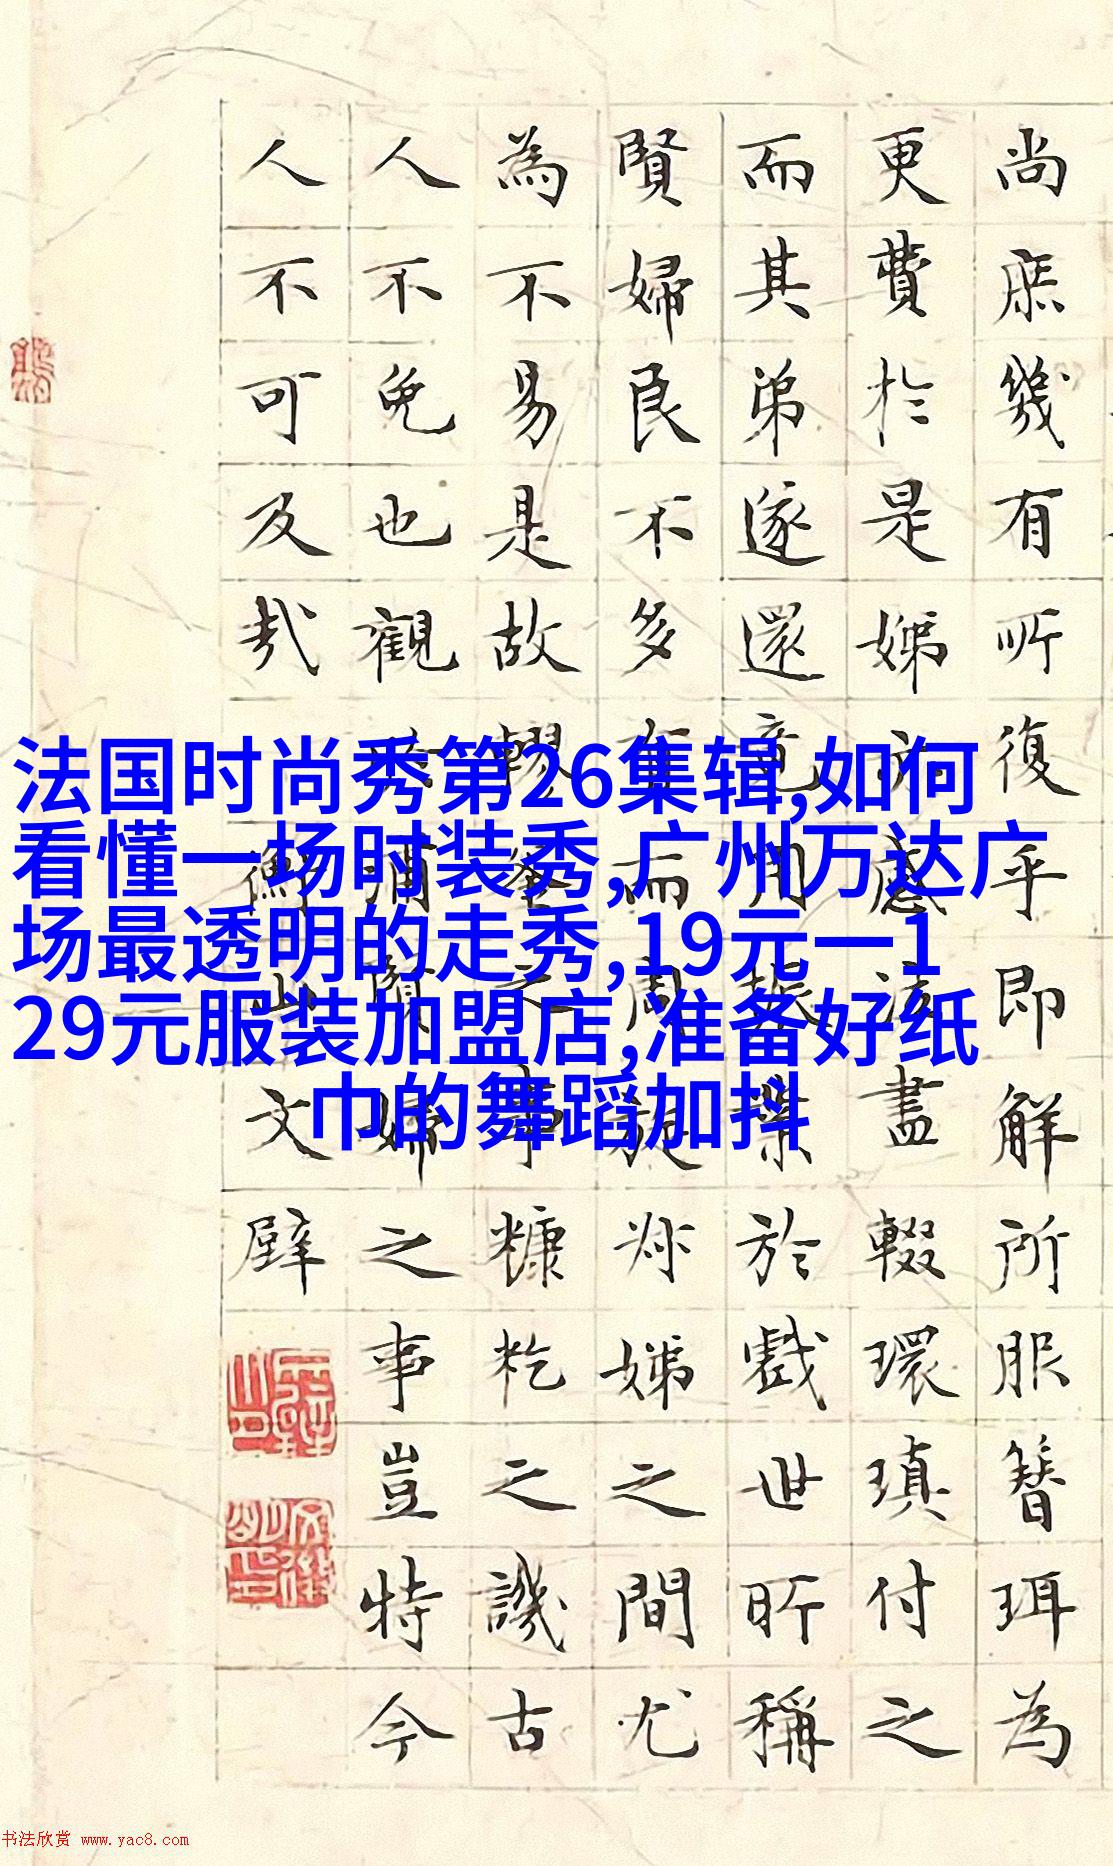 尚庶幾有所復乎即解所服簪珥為
更費於是姊感泣盡輟環瑱付之
而其弟遂還竟用振業於戲世所稱
賢婦良不多有而周旋姊之間尤
為不易是故轑羹之事糠籺之譏古
人不免也觀婦之事豈特今
人不可及哉
衡山文璧
法国时尚秀第26集辑,如何
看懂一场时装秀,广州万达广
场最透明的走秀,19元一1
29元服装加盟店,准备好纸
巾的舞蹈加抖
书法欣赏 www.yac8.com